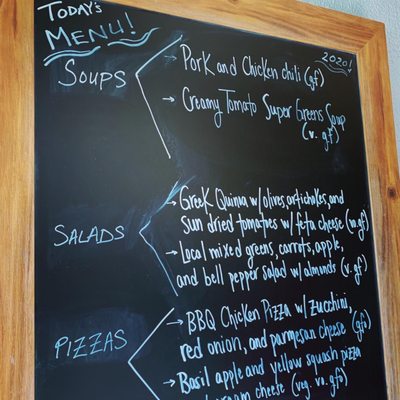 TODAY'S
MENU!
2020!
SOUPS
→ Pork and Chicken chili (gf)
→ Creamy Tomato Super Greens Soup
(v. gf)
SALADS
→ Greek Quinoa w/ olives, artichokes, and
sun dried tomatoes w/ feta cheese (gf)
→ Local mixed greens, carrots, apple,
and bell pepper salad w/ almonds (v. gf)
PIZZAS
→ BBQ Chicken Pizza w/ zucchini,
red onion, and parmesan cheese (gfo)
→ Basil apple and yellow squash pizza
cream cheese (veg. vo. gfo)